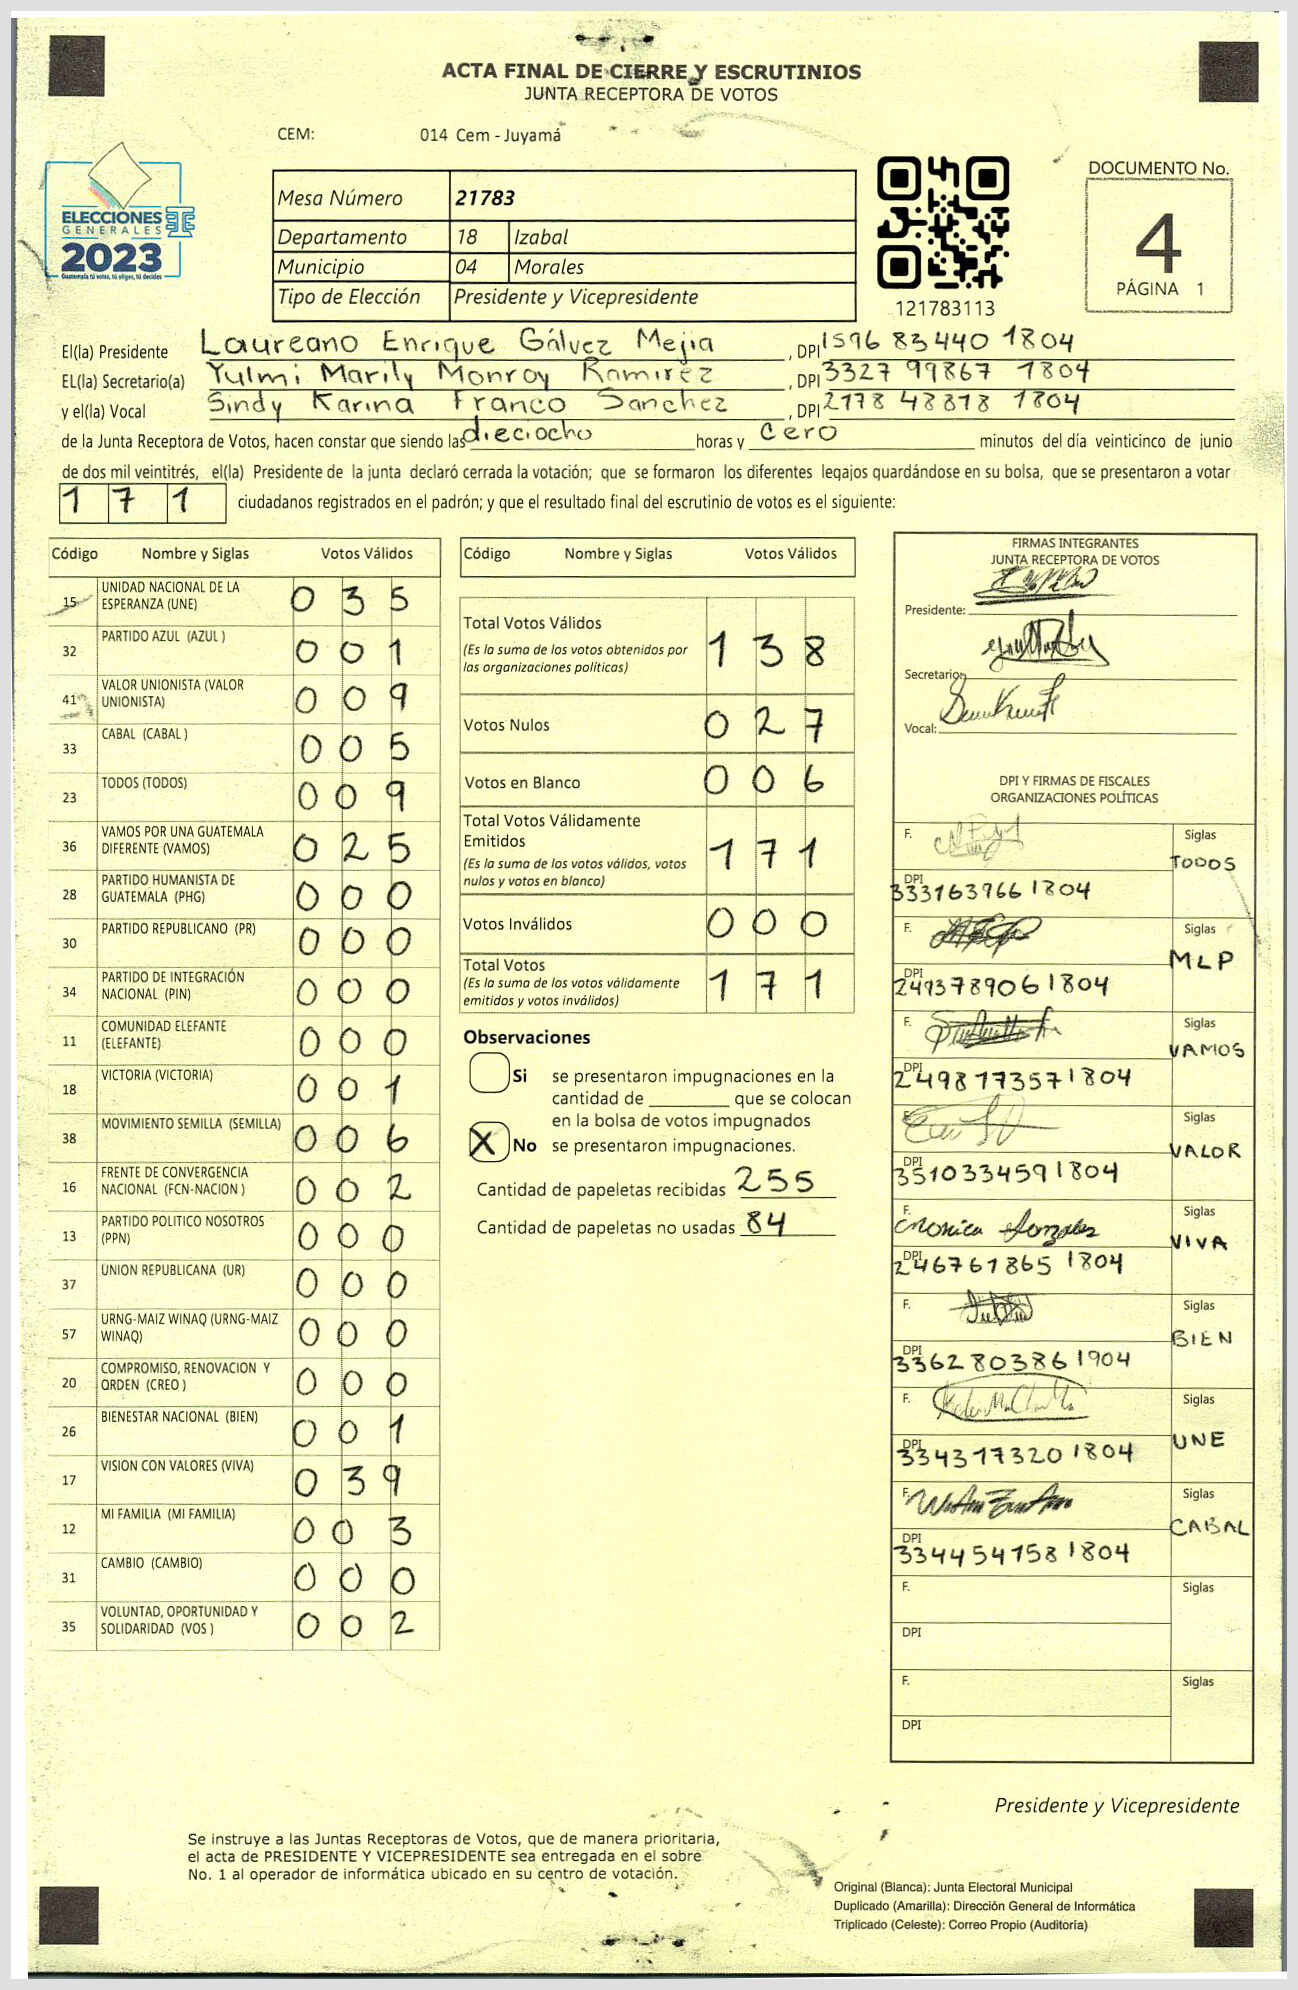 ACTA FINAL DE CIERRE Y ESCRUTINIOS
JUNTA RECEPTORA DE VOTOS
CEM: 014 Cem - Juyamá
ELECCIONES
GENERALES
2023
Guatemala tú votas, tú eliges, tú decides
Mesa Número 21783
Departamento 18 Izabal
Municipio 04 Morales
Tipo de Elección Presidente y Vicepresidente
121783113
DOCUMENTO No.
4
PÁGINA 1
El(la) Presidente Laureano Enrique Gálvez Mejia, DPI 1596 83440 1804
EL(la) Secretario(a) Yulmi Marily Monroy Ramirez, DPI 3327 99867 1804
y el(la) Vocal Sindy Karina Franco Sanchez, DPI 2178 48818 1804
de la Junta Receptora de Votos, hacen constar que siendo las dieciocho horas y cero minutos del día veinticinco de junio
de dos mil veintitrés, el(la) Presidente de la junta declaró cerrada la votación; que se formaron los diferentes legajos guardándose en su bolsa, que se presentaron a votar
171 ciudadanos registrados en el padrón; y que el resultado final del escrutinio de votos es el siguiente:
Código Nombre y Siglas Votos Válidos
15 UNIDAD NACIONAL DE LA ESPERANZA (UNE) 0 3 5
32 PARTIDO AZUL (AZUL ) 0 0 1
41 VALOR UNIONISTA (VALOR UNIONISTA) 0 0 9
33 CABAL (CABAL ) 0 0 5
23 TODOS (TODOS) 0 0 9
36 VAMOS POR UNA GUATEMALA DIFERENTE (VAMOS) 0 2 5
28 PARTIDO HUMANISTA DE GUATEMALA (PHG) 0 0 0
30 PARTIDO REPUBLICANO (PR) 0 0 0
34 PARTIDO DE INTEGRACIÓN NACIONAL (PIN) 0 0 0
11 COMUNIDAD ELEFANTE (ELEFANTE) 0 0 0
18 VICTORIA (VICTORIA) 0 0 1
38 MOVIMIENTO SEMILLA (SEMILLA) 0 0 6
16 FRENTE DE CONVERGENCIA NACIONAL (FCN-NACION ) 0 0 2
13 PARTIDO POLITICO NOSOTROS (PPN) 0 0 0
37 UNION REPUBLICANA (UR) 0 0 0
57 URNG-MAIZ WINAQ (URNG-MAIZ WINAQ) 0 0 0
20 COMPROMISO, RENOVACION Y ORDEN (CREO ) 0 0 0
26 BIENESTAR NACIONAL (BIEN) 0 0 1
17 VISION CON VALORES (VIVA) 0 3 9
12 MI FAMILIA (MI FAMILIA) 0 0 3
31 CAMBIO (CAMBIO) 0 0 0
35 VOLUNTAD, OPORTUNIDAD Y SOLIDARIDAD (VOS ) 0 0 2
Código Nombre y Siglas Votos Válidos
Total Votos Válidos 1 3 8
(Es la suma de los votos obtenidos por
las organizaciones políticas)
Votos Nulos 0 2 7
Votos en Blanco 0 0 6
Total Votos Válidamente
Emitidos 1 7 1
(Es la suma de los votos válidos, votos
nulos y votos en blanco)
Votos Inválidos 0 0 0
Total Votos 1 7 1
(Es la suma de los votos válidamente
emitidos y votos inválidos)
Observaciones
Si se presentaron impugnaciones en la
cantidad de ________ que se colocan
en la bolsa de votos impugnados
X No se presentaron impugnaciones.
Cantidad de papeletas recibidas 255
Cantidad de papeletas no usadas 84
FIRMAS INTEGRANTES
JUNTA RECEPTORA DE VOTOS
Presidente:
Secretario:
Vocal:
DPI Y FIRMAS DE FISCALES
ORGANIZACIONES POLÍTICAS
F. Siglas TODOS
DPI 333163966 1804
F. Siglas MLP
DPI 249378906 1804
F. Siglas VAMOS
DPI 249817357 1804
F. Siglas VALOR
DPI 351033459 1804
F. Siglas VIVA
DPI 246761865 1804
F. Siglas BIEN
DPI 336280386 1904
F. Siglas UNE
DPI 334317320 1804
F. Siglas CABAL
DPI 334454758 1804
F. Siglas
DPI
F. Siglas
DPI
Presidente y Vicepresidente
Se instruye a las Juntas Receptoras de Votos, que de manera prioritaria,
el acta de PRESIDENTE Y VICEPRESIDENTE sea entregada en el sobre
No. 1 al operador de informática ubicado en su centro de votación.
Original (Blanca): Junta Electoral Municipal
Duplicado (Amarilla): Dirección General de Informática
Triplicado (Celeste): Correo Propio (Auditoría)